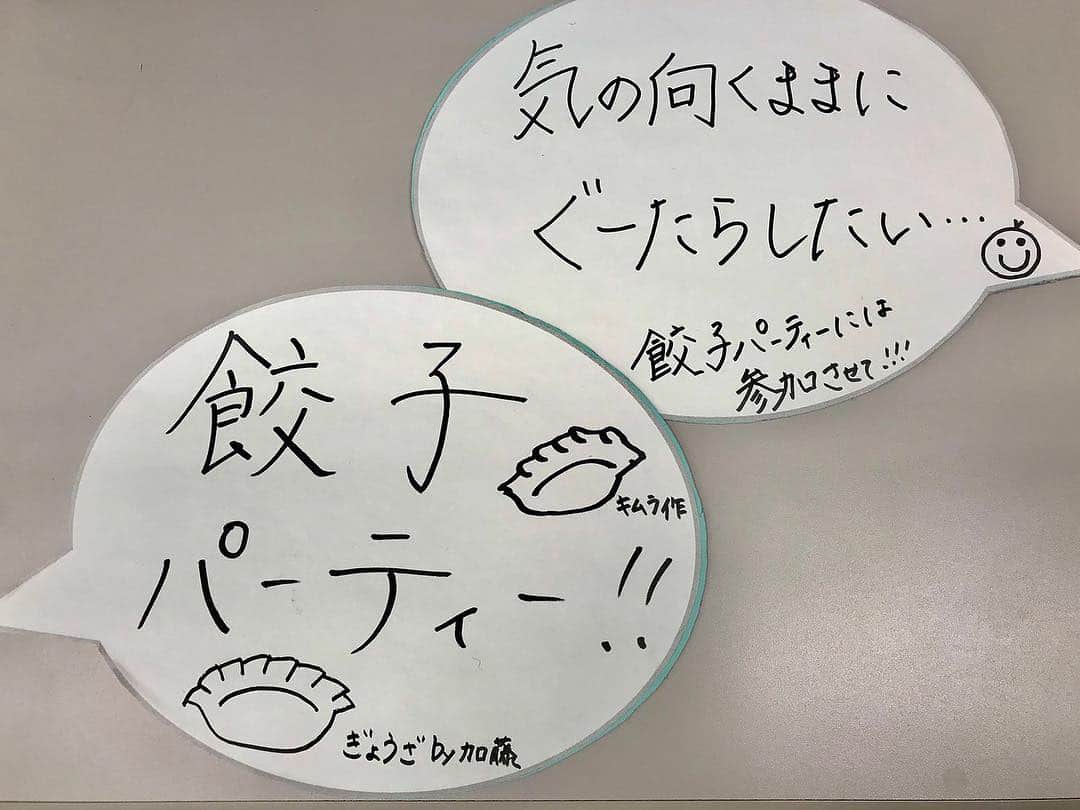 気の向くままに
ぐーたらしたい…
餃子パーティーには
参加させて!!!
餃子
キムラ作
パーティー!!
ぎょうざby加藤